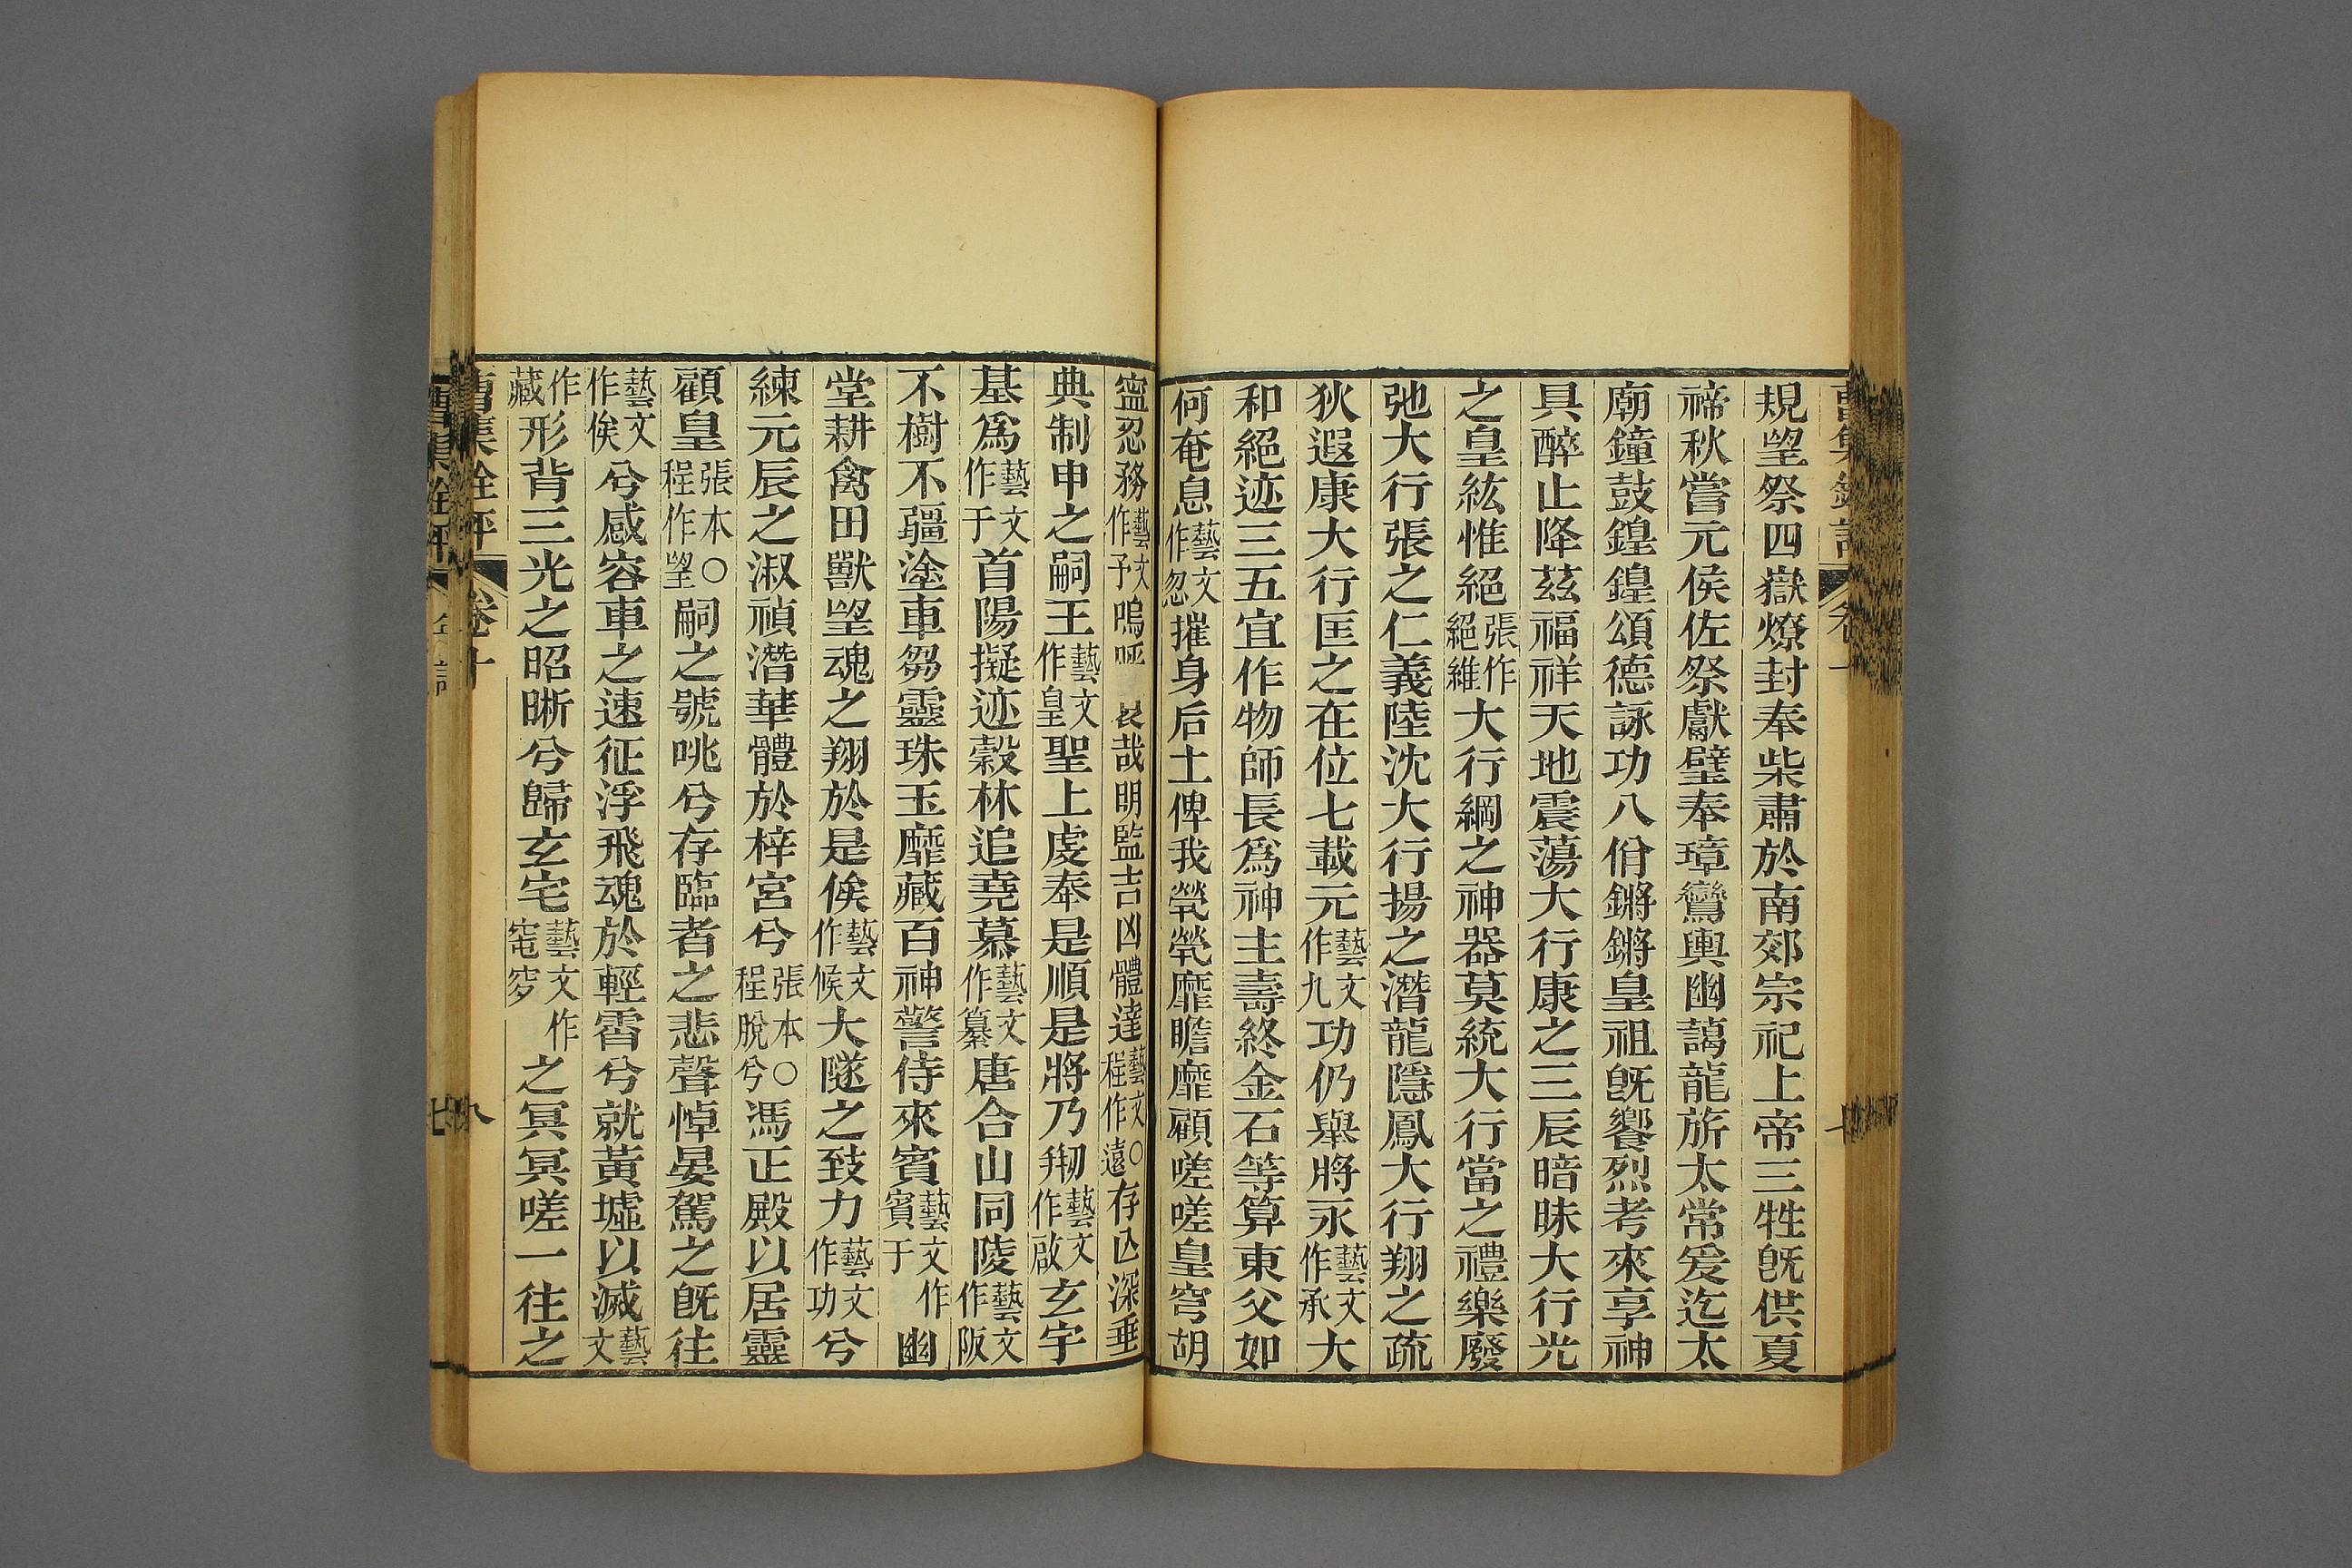 規望祭四嶽燎封奉柴肅於南郊宗祀上帝三牲旣供夏
禘秋嘗元侯佐祭獻璧奉璋鸞輿幽藹龍旂太常爰迄太
廟鐘鼓鍠鍠頌德詠功八佾鏘鏘皇祖旣饗烈考來享神
具醉止降茲福祥天地震蕩大行康之三辰暗昧大行光
之皇紘惟絕張作絕維大行綱之神器莫統大行當之禮樂廢
弛大行張之仁義陸沈大行揚之潛龍隱鳳大行翔之疏
狄遐康大行匡之在位七載元藝文作九功仍舉將永藝文作承大
和絕迹三五宜作物師長爲神主壽終金石等算東父如
何奄息藝文作忽摧身后土俾我煢煢靡瞻靡顧嗟嗟皇穹胡
寍忍務藝文作予嗚呼哀哉明監吉凶體達藝文〇程作遠存亾深垂
典制申之嗣王藝文作皇聖上虔奉是順是將乃剏藝文作啟玄宇
基爲藝文作于首陽擬迹穀林追堯慕藝文作纂唐合山同陵藝文作阪
不樹不疆塗車芻靈珠玉靡藏百神警侍來賓藝文作賓于幽
堂耕禽田獸望魂之翔於是俟藝文作候大隧之致力藝文作功兮
練元辰之淑禎潛華體於梓宮兮張本〇程脫兮馮正殿以居靈
顧皇張本〇程作望嗣之號咷兮存臨者之悲聲悼晏駕之旣往
藝文作俟兮感容車之速征浮飛魂於輕霄兮就黃墟以滅藝文
作藏形背三光之昭晰兮歸玄宅藝文作窀穸之冥冥嗟一往之
曹集銓評 卷十 八